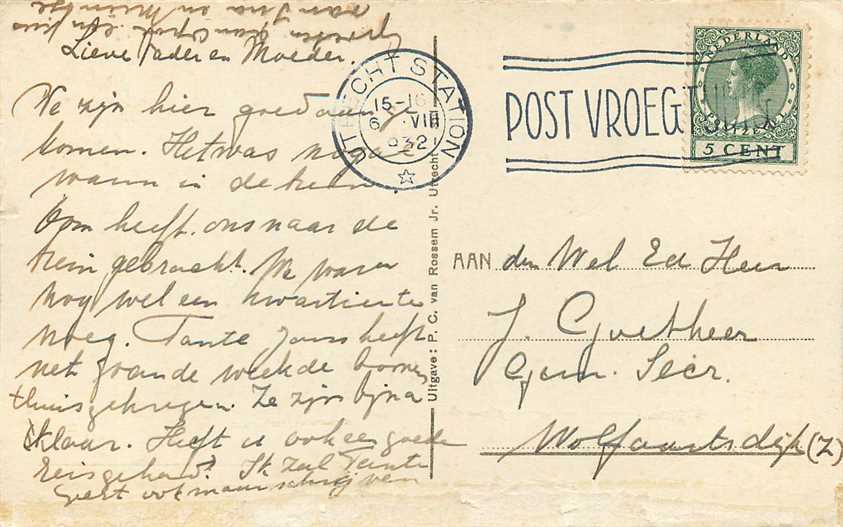 Lieve Vader en Moeder.
We zijn hier goed aange
komen. Het was nogal
warm in de trein.
Oom heeft ons naar de
trein gebracht. We waren
nog wel een kwartier te
vroeg. Tante Jans heeft
net de
thuisgekregen. Ze zijn bijna
klaar. Heeft u ook een goede
reis gehad? Ik zal Tante
Geert ook maar schrijven
groeten van
van Ina en
UTRECHT STATION
15-16
6 VIII
1932
POST VROEG
NEDERLAND
5 CENT
Uitgave: P. C. van Rossem Jr. Utrecht
AAN den Wel Ed Heer
J. Goetheer
Gem. Secr.
Wolfaartsdijk (Z)